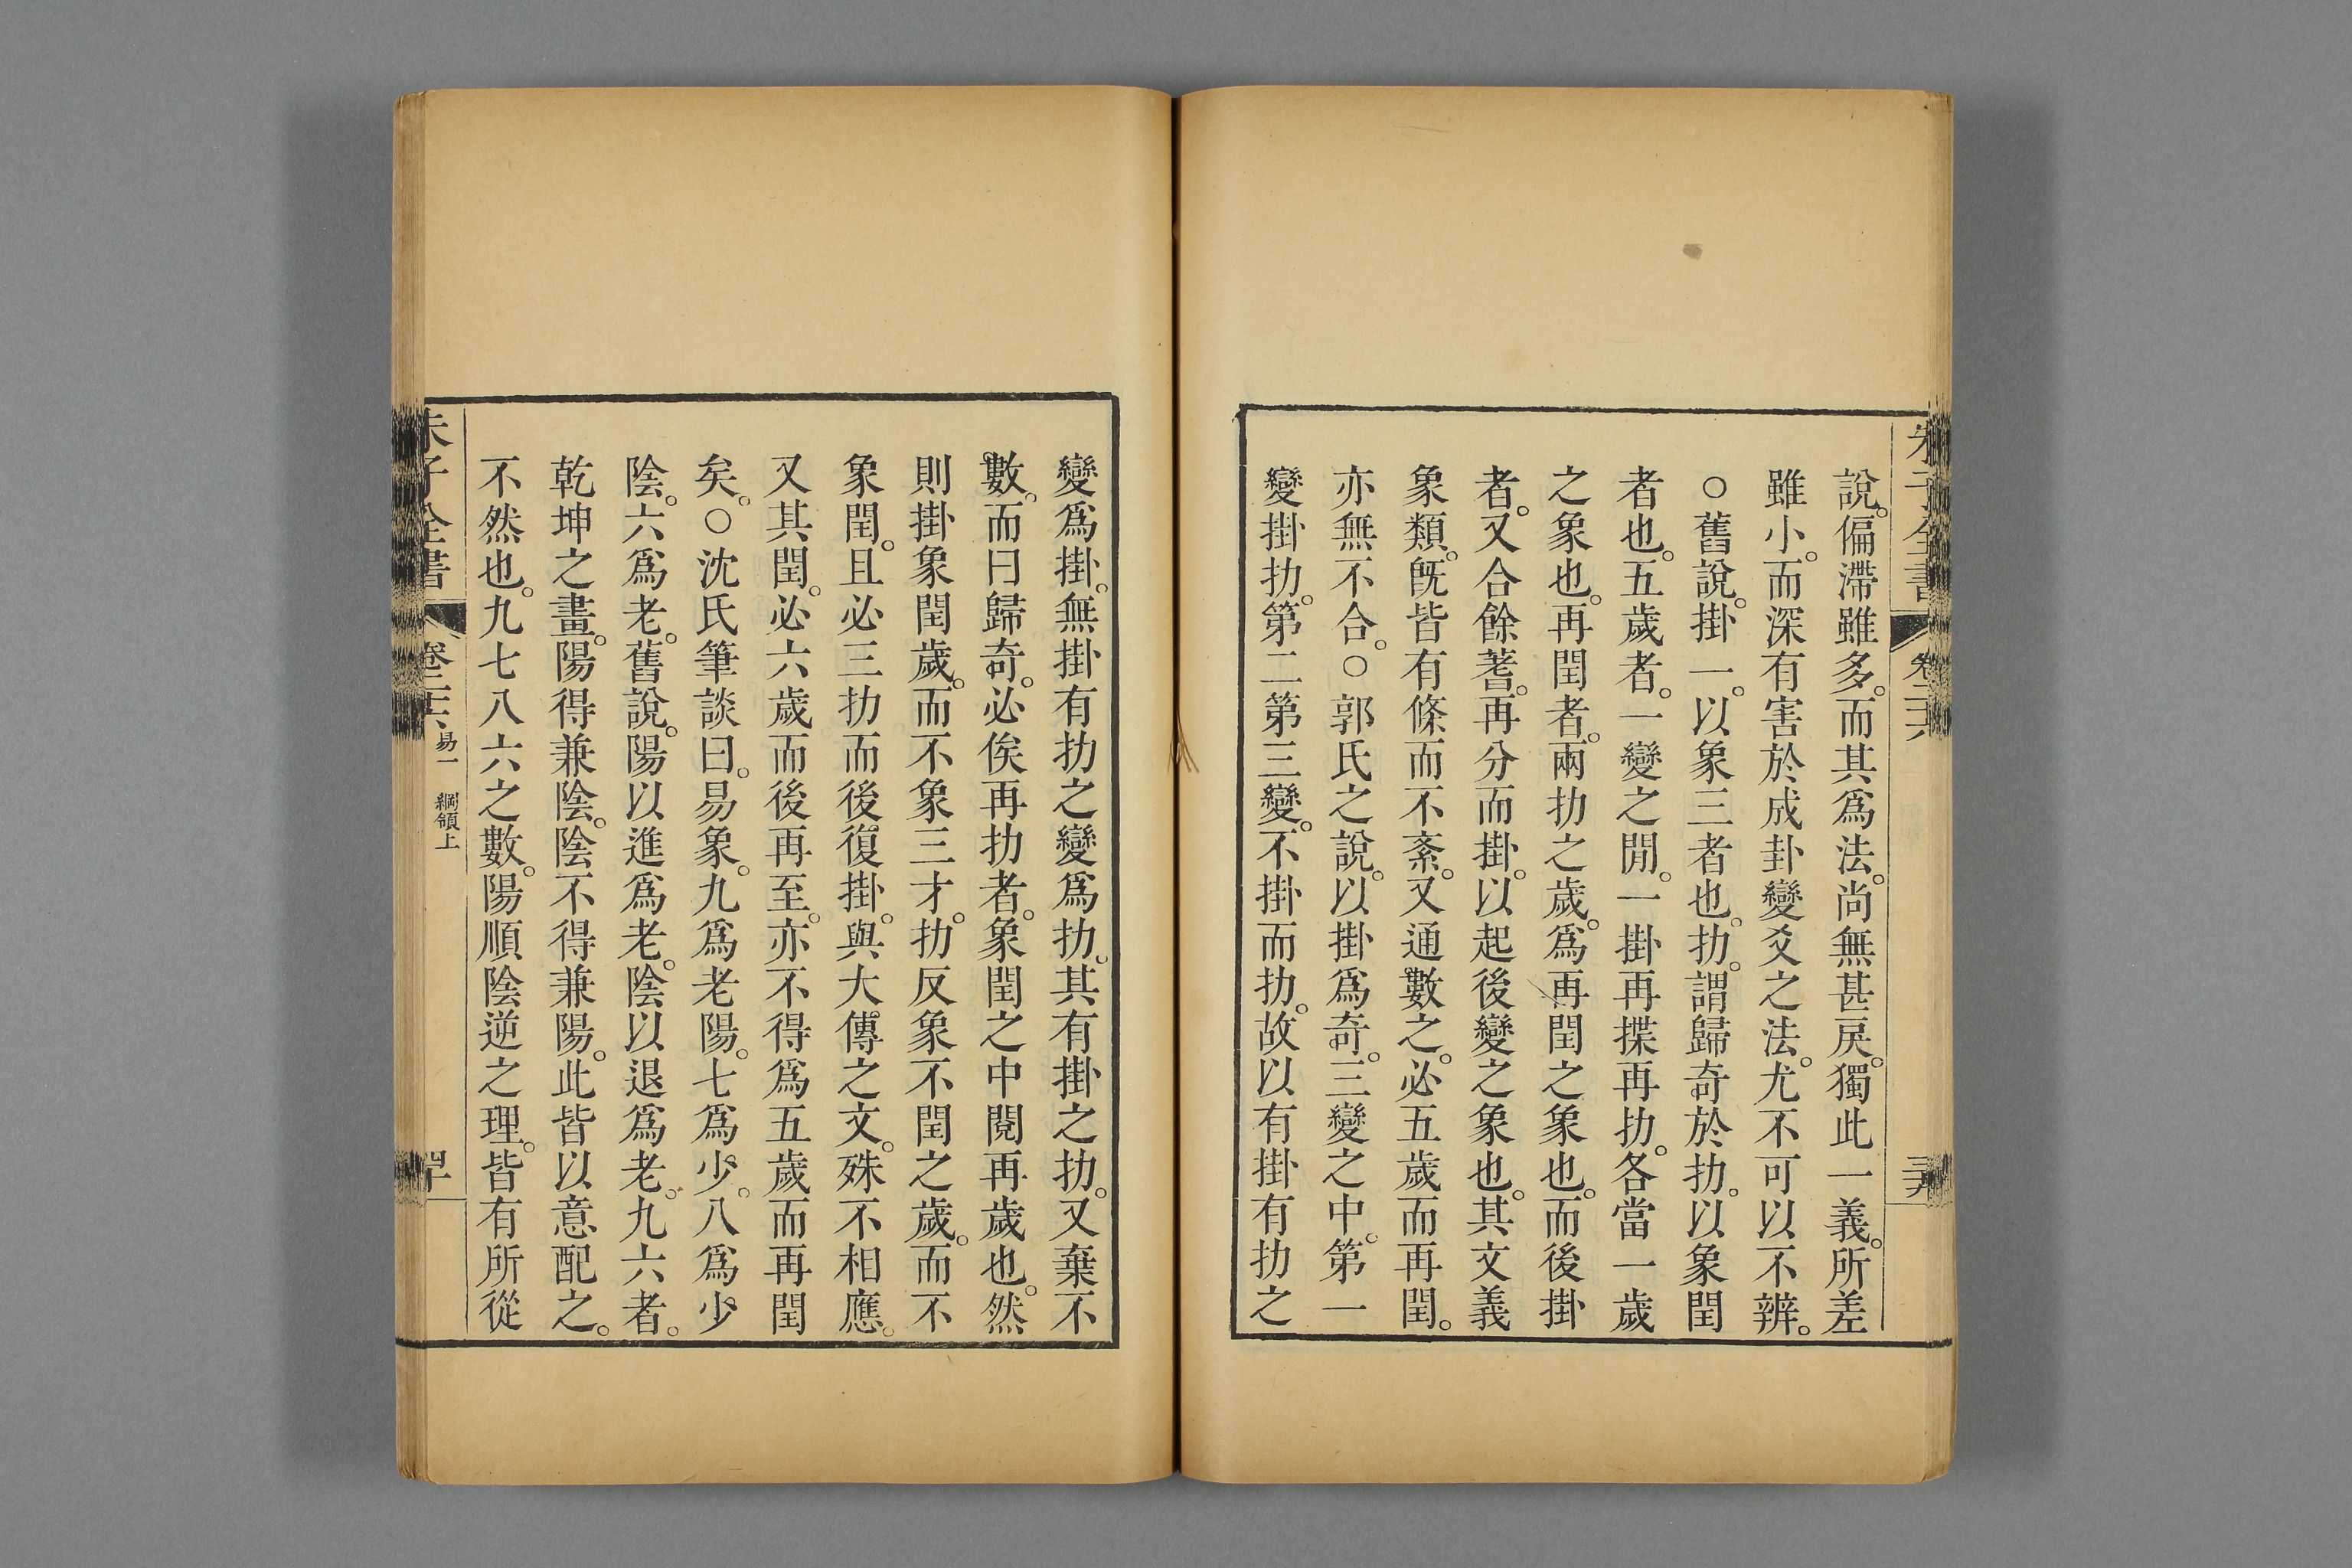 朱子全書 卷二十六 三十九
說。偏滯雖多。而其爲法。尚無甚戾。獨此一義。所差
雖小。而深有害於成卦變爻之法。尤不可以不辨。
○舊說。掛一。以象三者也。扐。謂歸奇於扐。以象閏
者也。五歲者。一變之閒。一掛再揲再扐。各當一歲
之象也。再閏者。兩扐之歲。爲再閏之象也。而後掛
者。又合餘蓍。再分而掛。以起後變之象也。其文義
象類。旣皆有條而不紊。又通數之。必五歲而再閏。
亦無不合。○郭氏之說。以掛爲奇。三變之中。第一
變掛扐。第二第三變。不掛而扐。故以有掛有扐之
變爲掛。無掛有扐之變爲扐。其有掛之扐。又棄不
數。而曰歸奇。必俟再扐者。象閏之中閱再歲也。然
則掛象閏歲。而不象三才。扐反象不閏之歲。而不
象閏。且必三扐而後復掛。與大傳之文。殊不相應。
又其閏。必六歲而後再至。亦不得爲五歲而再閏
矣。○沈氏筆談曰。易象。九爲老陽。七爲少。八爲少
陰。六爲老。舊說。陽以進爲老。陰以退爲老。九六者。
乾坤之畫。陽得兼陰。陰不得兼陽。此皆以意配之。
不然也。九七八六之數。陽順陰逆之理。皆有所從
朱子全書 卷二十六 易一 綱領上 四十